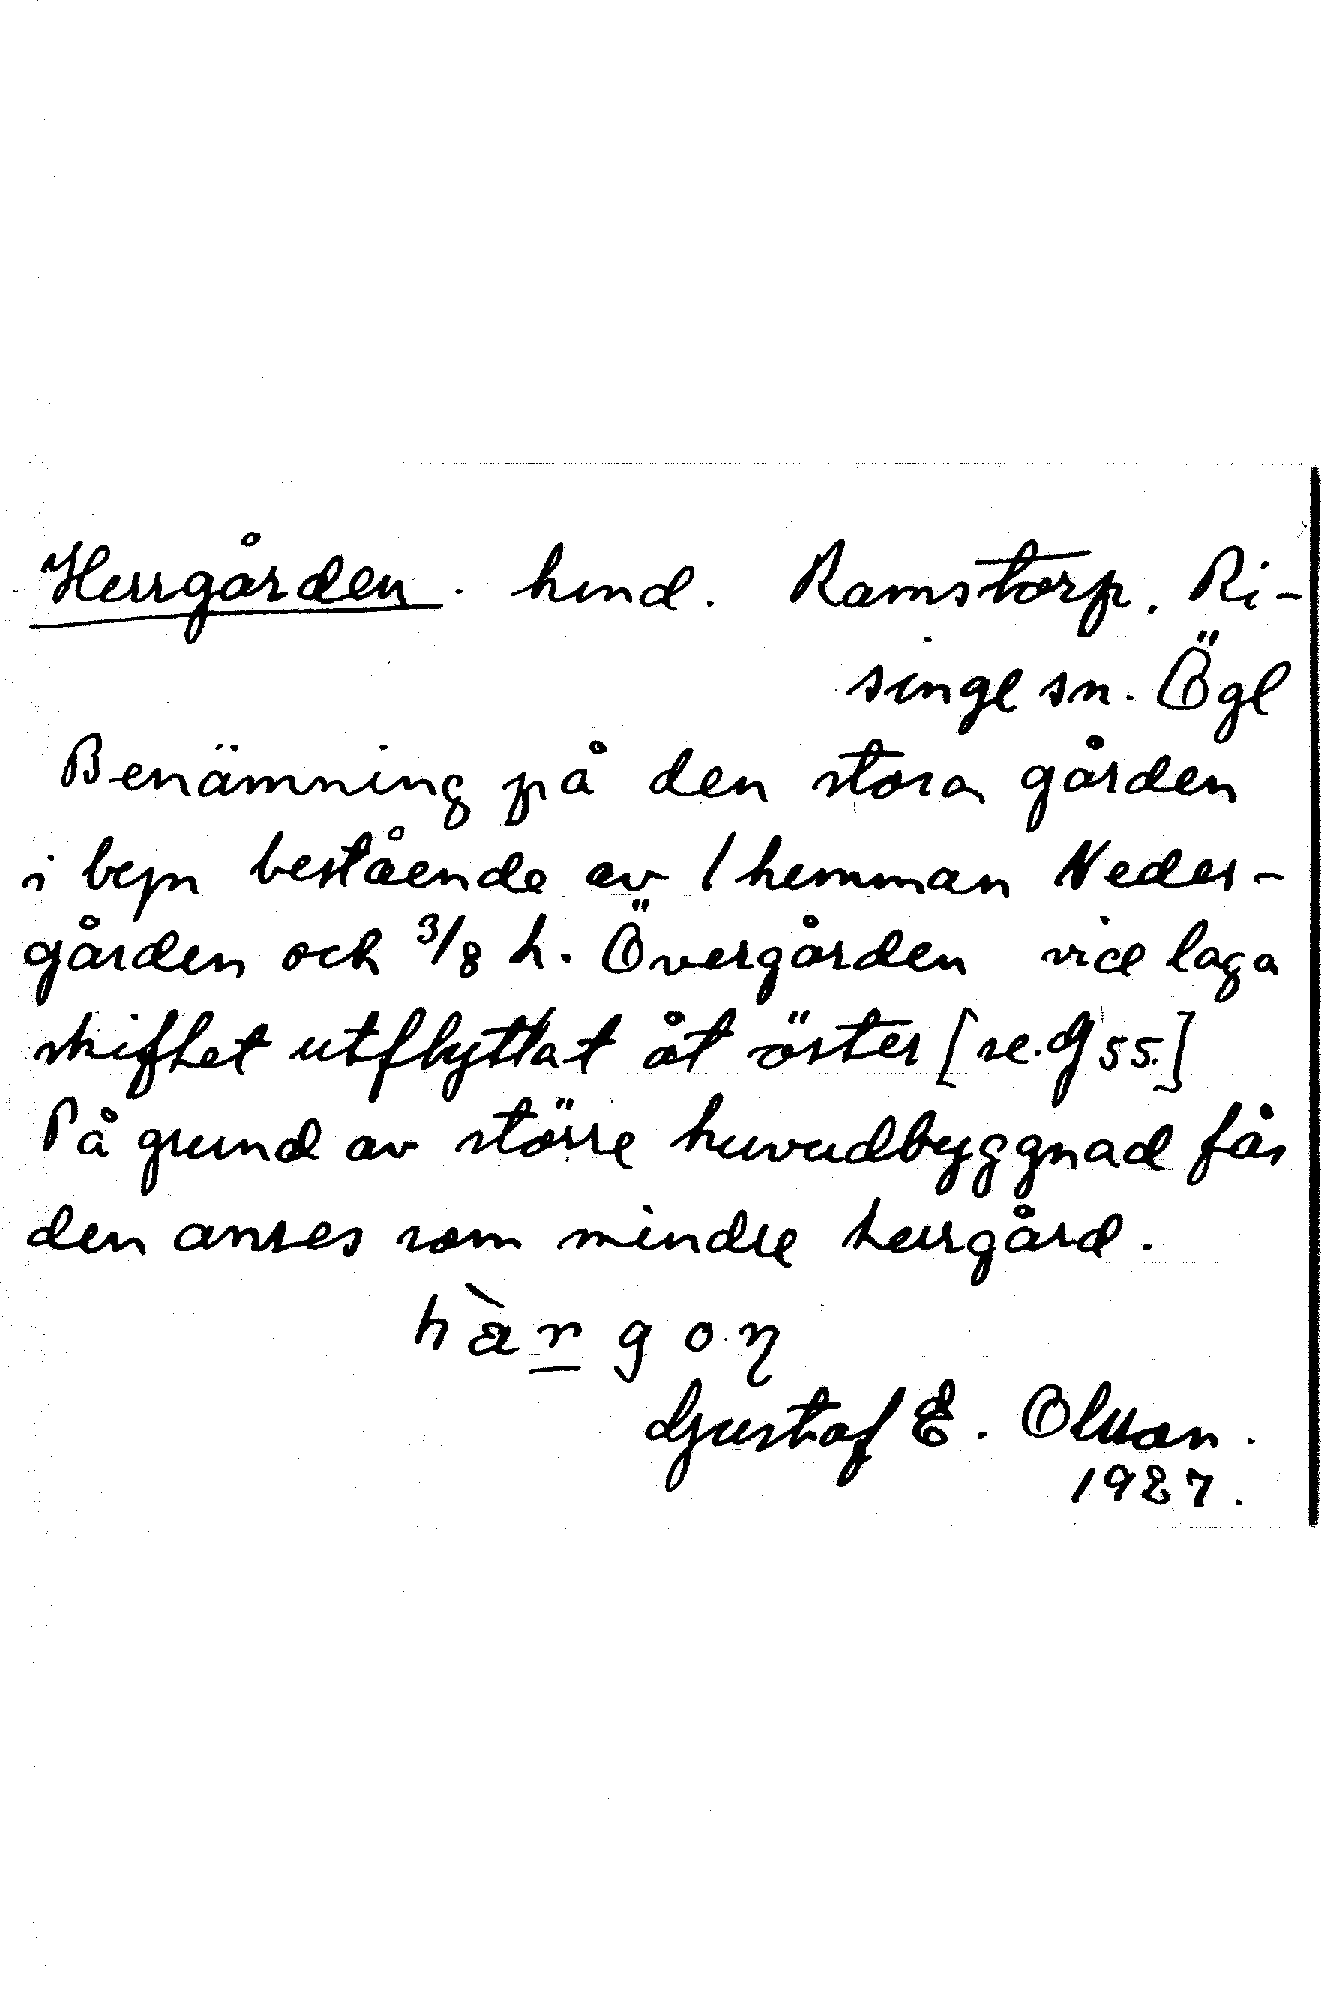 Herrgården. hmd. Ramstorp. Ri-
singe sn. Ögl
Benämning på den stora gården
i byn bestående av 1 hemman Neder-
gården och 3/8 h. Övergården vid laga
skiftet utflyttat åt öster [se. G 55.]
På grund av större huvudbyggnad får
den anses som mindre herrgård.
hàrgoƞ
Gustaf E. Olsson.
1927.